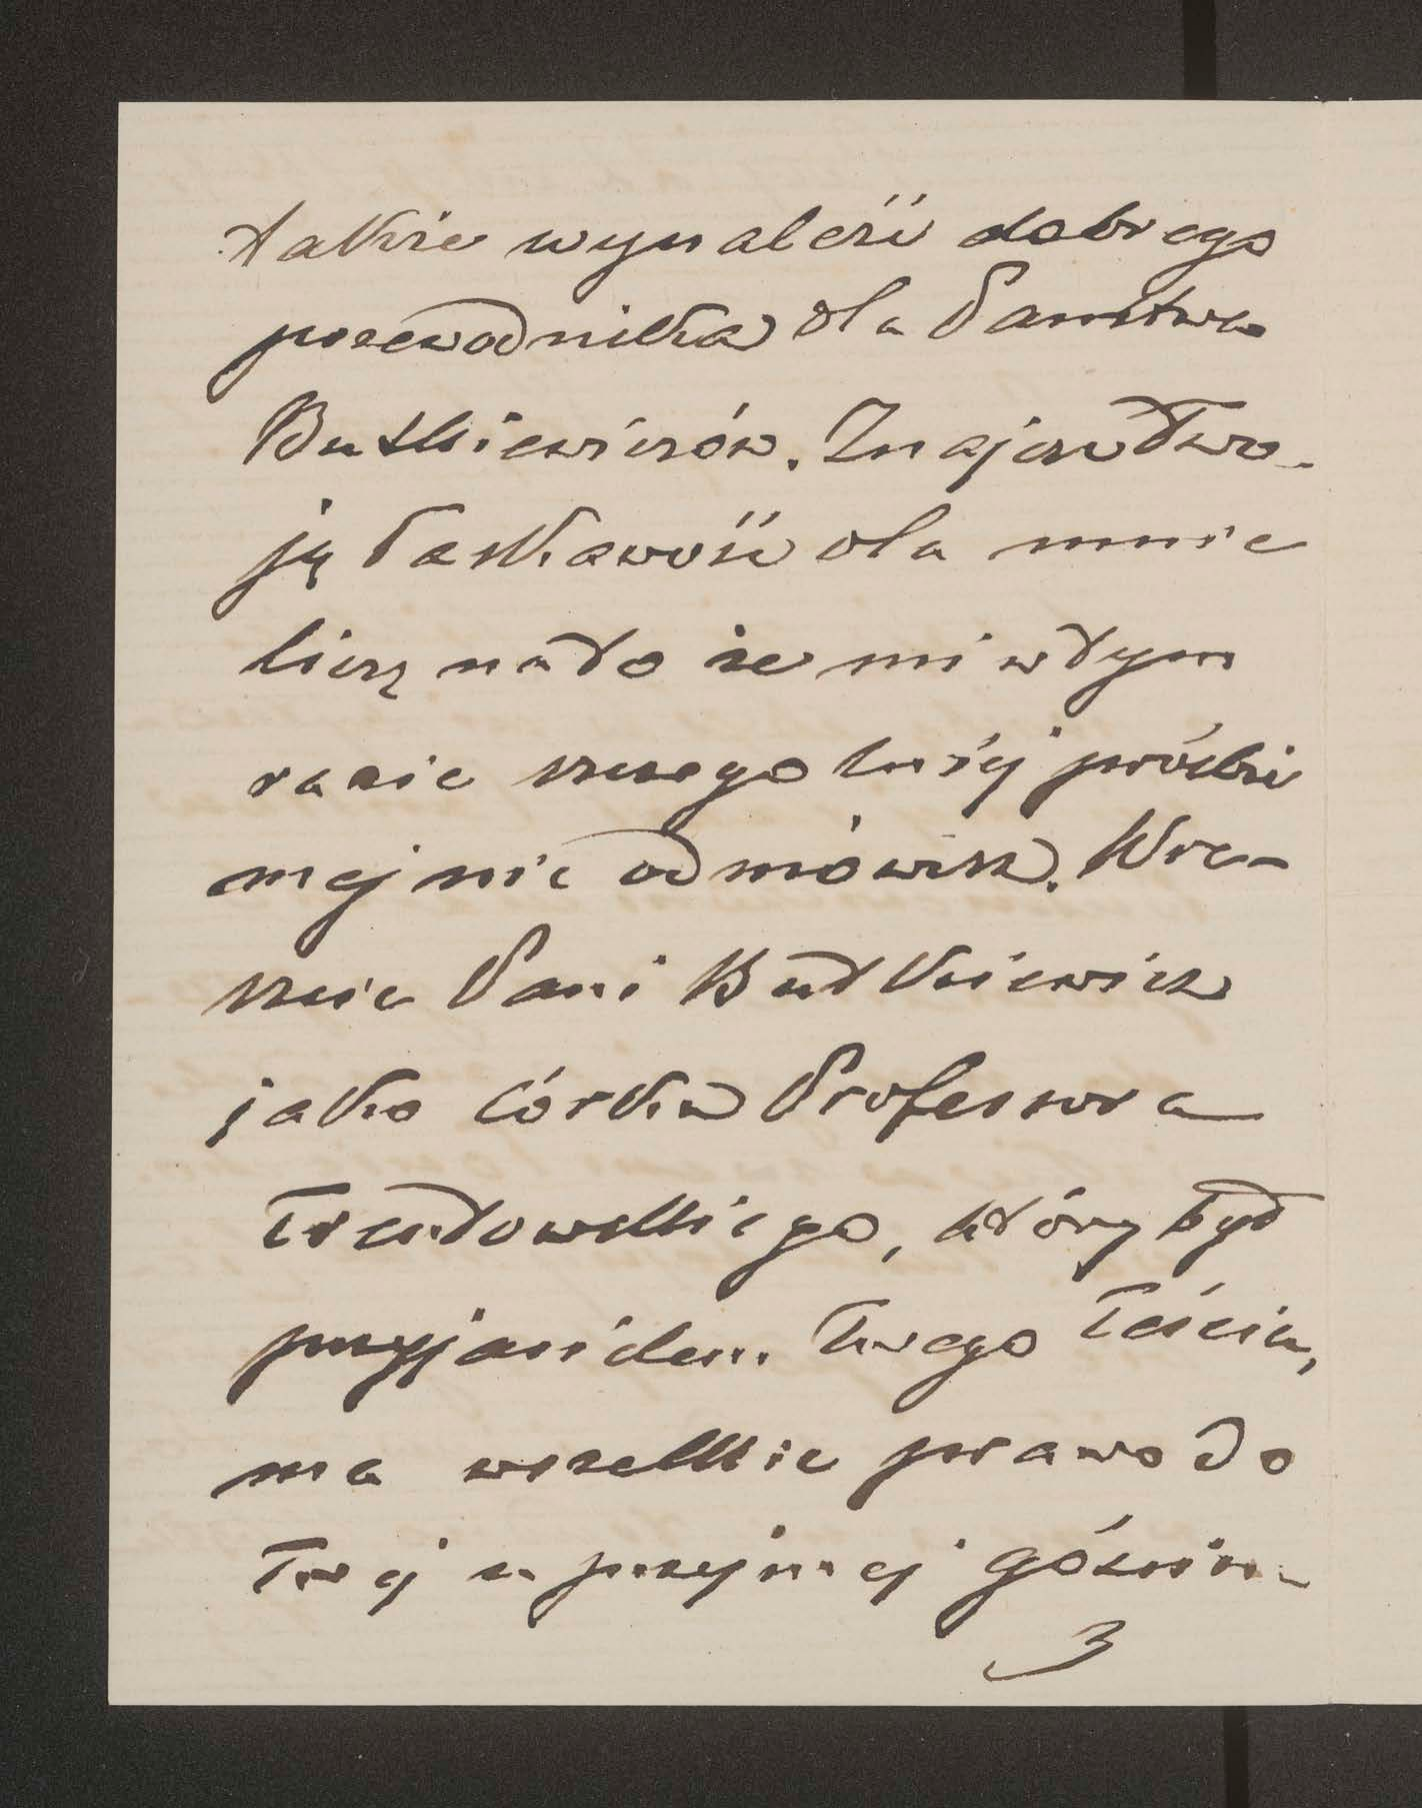 także wynaleźć dobrego
przewodnika dla Państwa
Butkiewiczów. Znając Two-
ją łaskawość dla mnie
liczę na to że mi w tym
razie mej prośbie
mej nie odmówisz. Wre-
szcie Pani Butkiewicz
jako córka Professora
Trentowskiego, który był
przyjacielem Twego Teścia,
ma wszelkie prawo do
Twej uprzejmej gościn-
3